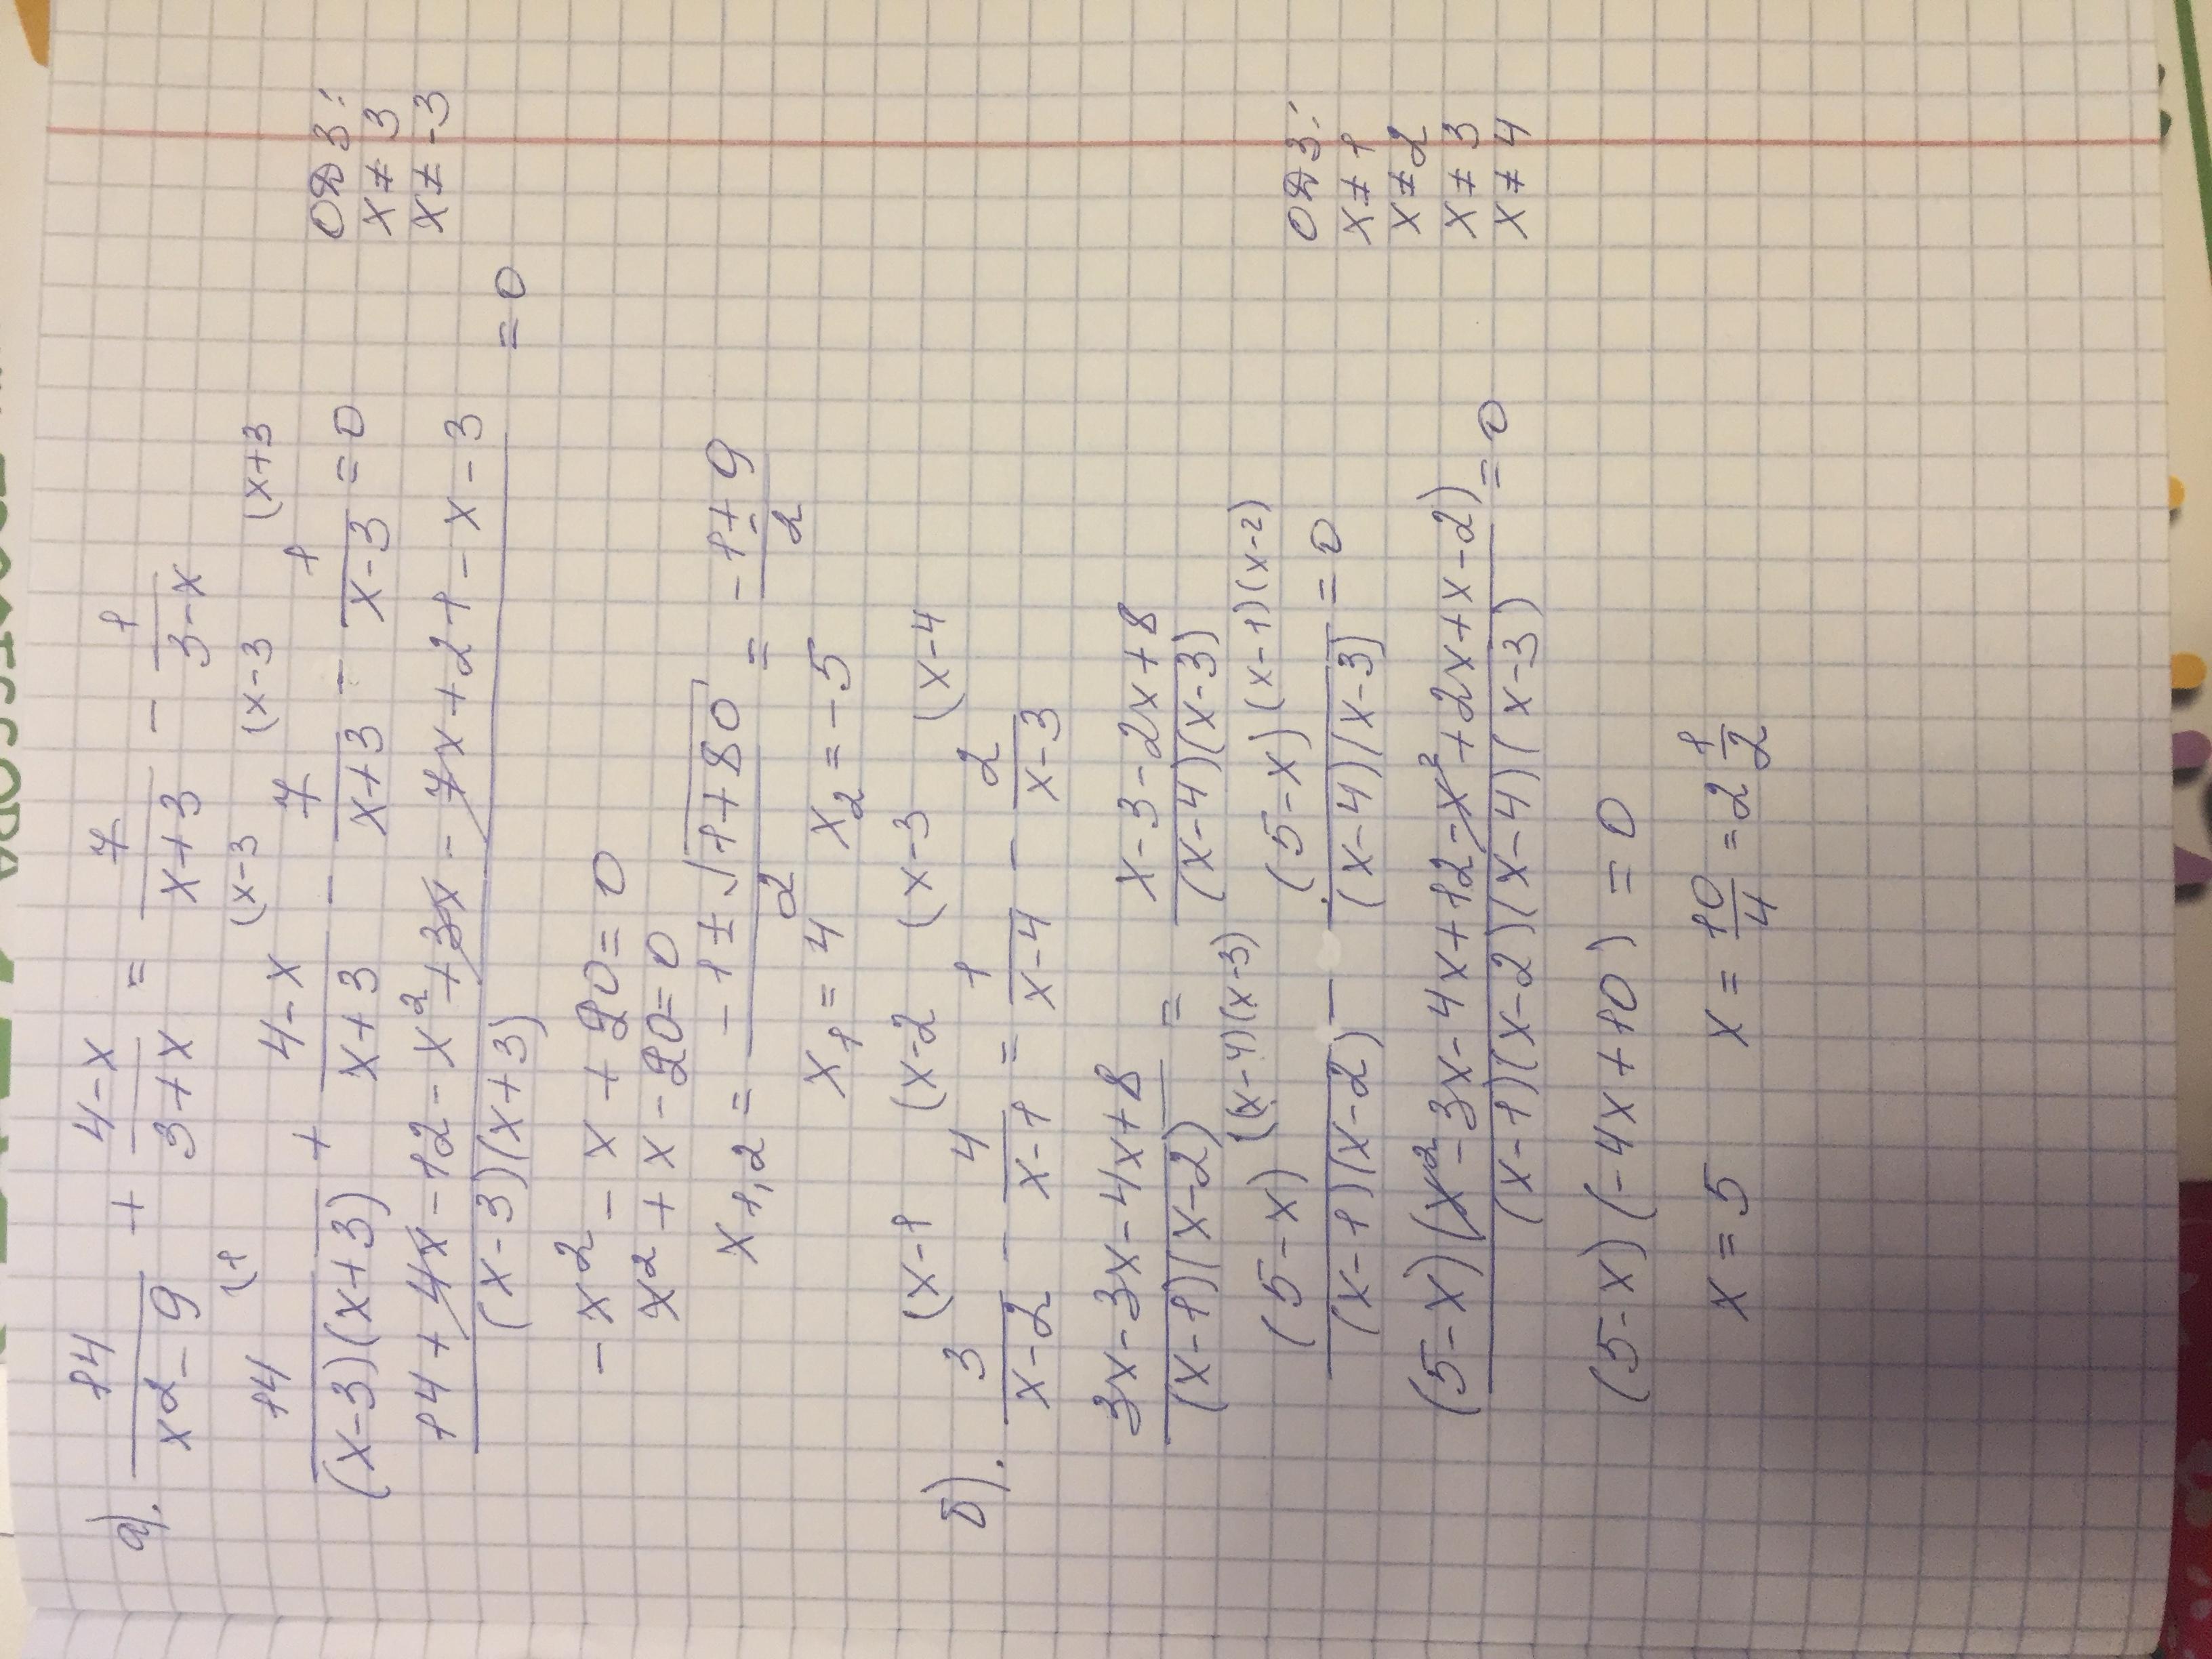 а). 14/(x²-9) + (4-x)/(3+x) = 7/(x+3) - 1/(3-x)
(1 (x-3 (x-3 (x+3
14/((x-3)(x+3)) + (4-x)/(x+3) - 7/(x+3) - 1/(x-3) = 0
ОДЗ:
x≠3
x≠-3
(14+4x-12-x²+3x-7x+21-x-3)/((x-3)(x+3)) = 0
-x²-x+20=0
x²+x-20=0
x₁,₂ = (-1±√(1+80))/2 = (-1±9)/2
x₁=4 x₂=-5
(x-1 (x-2 (x-3 (x-4
б). 3/(x-2) - 4/(x-1) = 1/(x-4) - 2/(x-3)
(3x-3x-4x+8)/((x-1)(x-2)) = (x-3-2x+8)/((x-4)(x-3))
(5-x) (x-4)(x-3)/((x-1)(x-2)) - (5-x)(x-1)(x-2)/((x-4)(x-3)) = 0
ОДЗ:
x≠1
x≠2
x≠3
x≠4
(5-x)(x²-3x-4x+12-x²+2x+x-2)/((x-1)(x-2)(x-4)(x-3)) = 0
(5-x)(-4x+10)=0
x=5 x=10/4=2 1/2